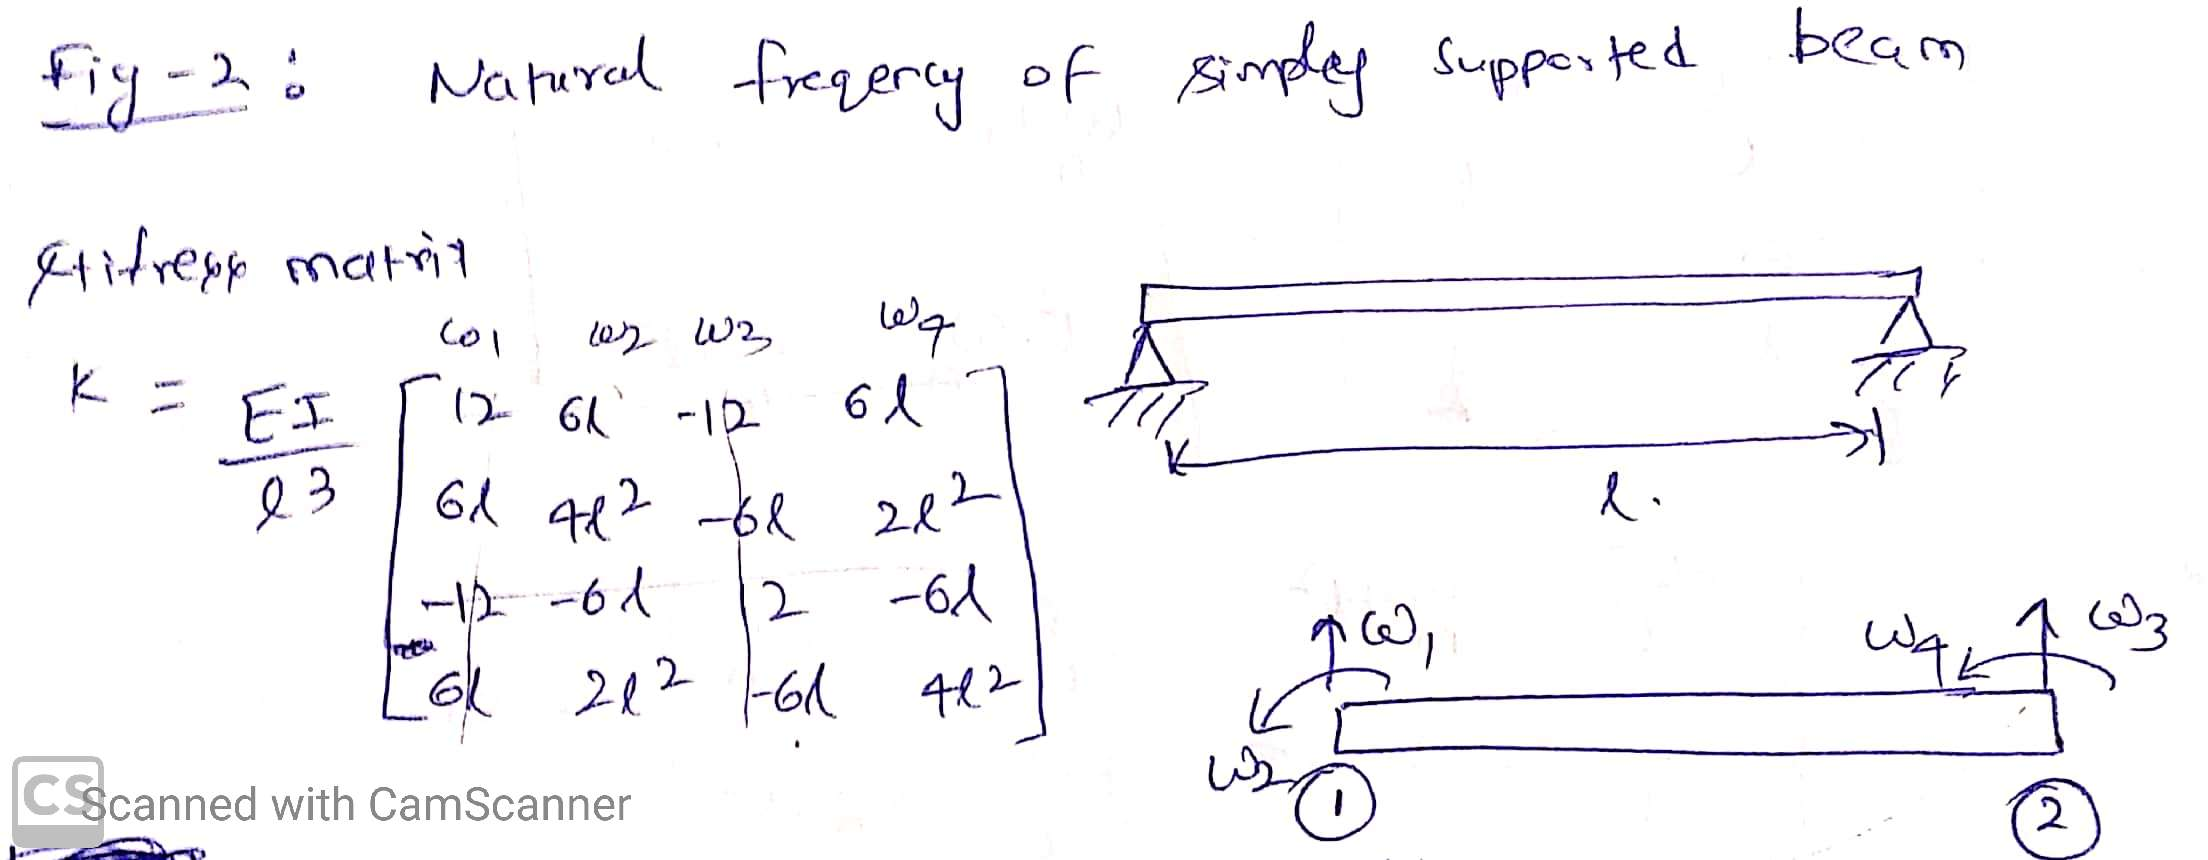 Fig-2: Natural freqency of simpley supported beam
stifness matrix
ω1 ω2 ω3 ω4
K = EI/l3 [12 6l -12 6l
6l 4l2 -6l 2l2
-12 -6l 12 -6l
6l 2l2 -6l 4l2]
l.
ω1 ω4 ω3
ω2
1 2
CS Scanned with CamScanner